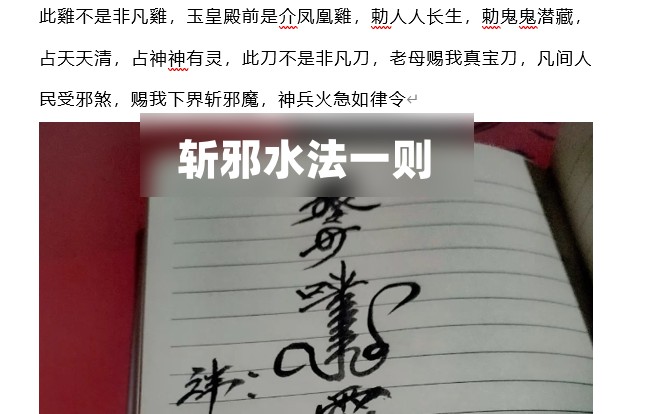 此雞不是非凡雞，玉皇殿前是介凤凰雞，勑人人长生，勑鬼鬼潜藏，
占天天清，占神神有灵，此刀不是非凡刀，老母赐我真宝刀，凡间人
民受邪煞，赐我下界斩邪魔，神兵火急如律令
斩邪水法一则